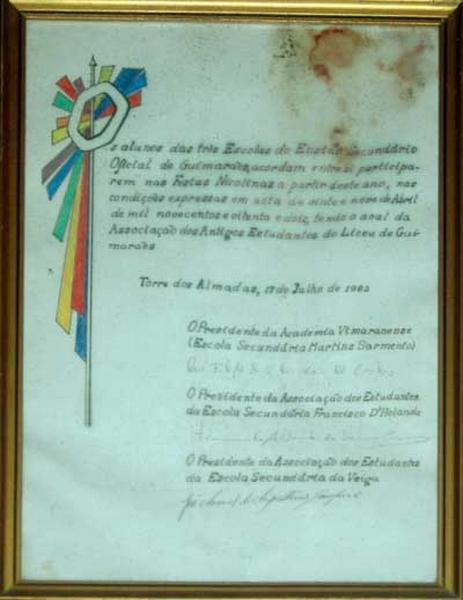 Os alunos das três Escolas do Ensino Secundário
Oficial de Guimarães, acordam entre si participa-
rem nas Festas Nicolinas a partir deste ano, nas
condições expressas em acta de vinte e nove de Abril
de mil novecentos e oitenta e dois, tendo o aval da
Associação dos Antigos Estudantes do Liceu de Gui-
marães
Torre dos Almadas, 17 de Julho de 1982
O Presidente da Academia Vimaranense
(Escola Secundária Martins Sarmento)
O Presidente da Associação dos Estudantes
da Escola Secundária Francisco D'Holanda
O Presidente da Associação dos Estudantes
da Escola Secundária da Veiga